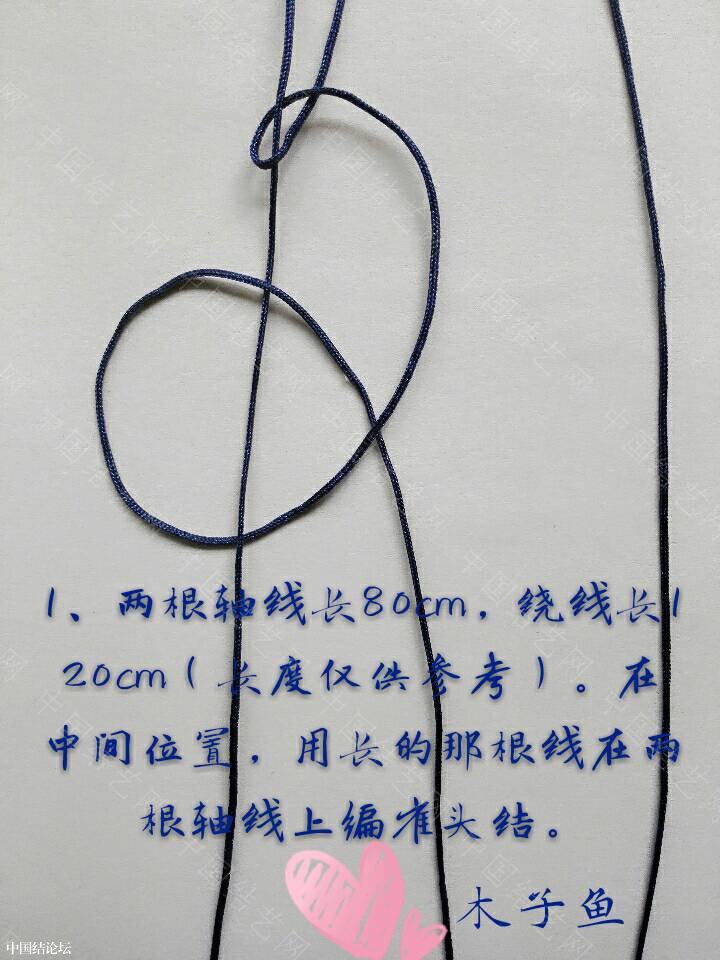 1、两根轴线长80cm，绕线长1
20cm（长度仅供参考）。在
中间位置，用长的那根线在两
根轴线上编雀头结。
木子鱼
中国结论坛
中国结艺网